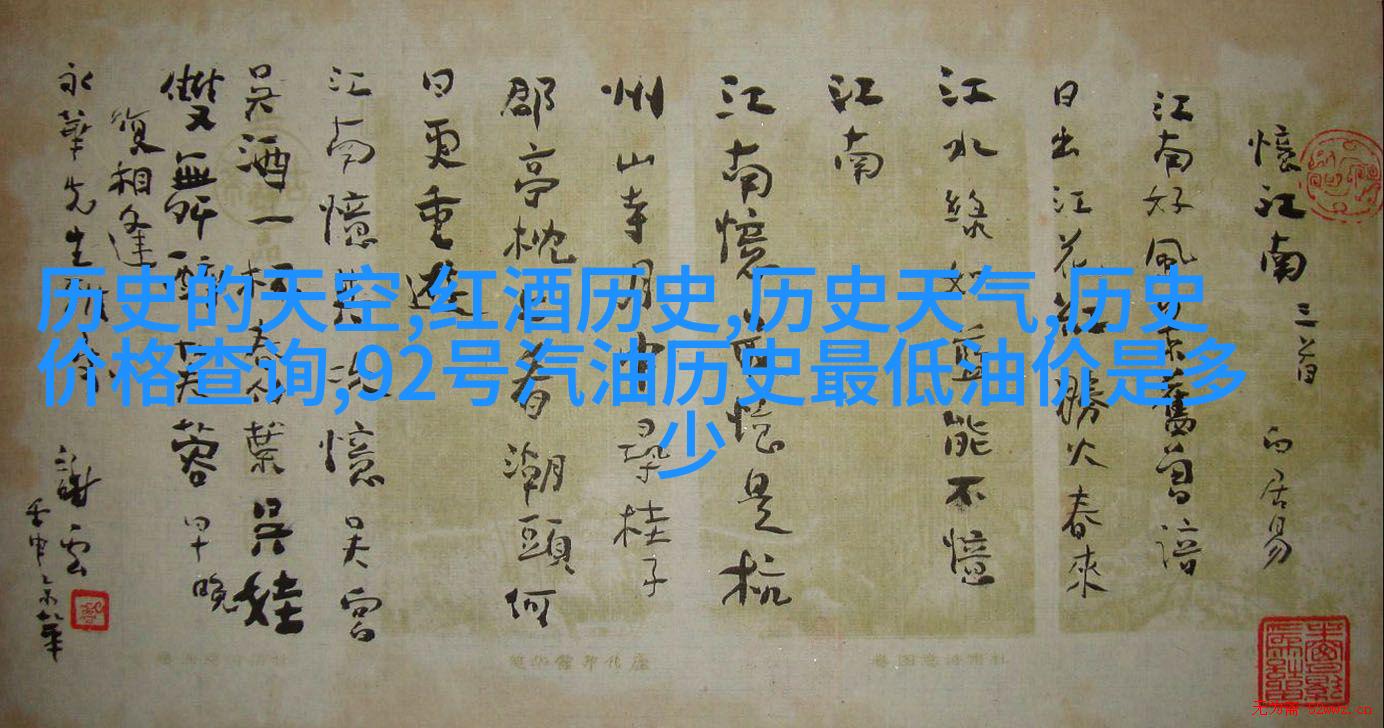 憶江南 三首 白居易
江南好風景舊曾諳
日出江花紅勝火春來
江水綠如藍能不憶
江南
江南憶最憶是杭
州山寺月中尋桂子
郡亭枕上看潮頭何
日更重遊
江南憶其次憶吳宮
吳酒一杯春竹葉吳娃
雙舞醉芙蓉早晚
復相逢
永華先生
謝雲
历史的天空,红酒历史,历史天气,历史
价格查询,92号汽油历史最低油价是多
少